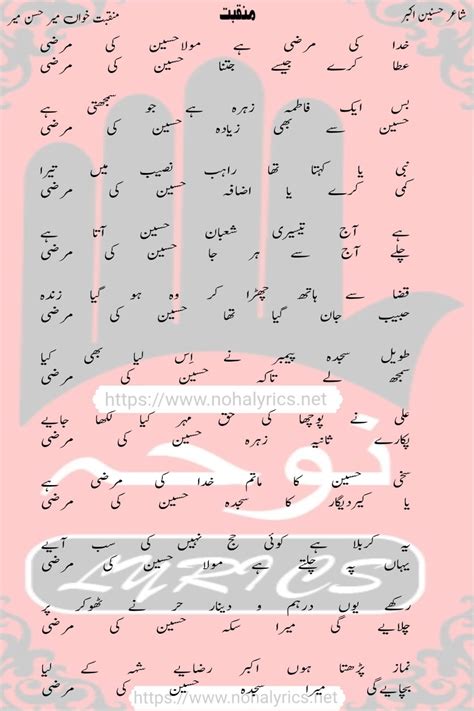 شاعر حسنین اکبر
منقبت
منقبت خواں میر حسن میر
خدا کی مرضی ہے مولا حسین کی مرضی
عطا کرے جیسے جتنا حسین کی مرضی
بس ایک فاطمہ زہرہ ہے جو سمجھتی ہے
حسین سے بھی زیادہ حسین کی مرضی
نبی یا کہتا تھا راہب نصیب میں تیرا
کمی کرے یا اضافہ حسین کی مرضی
ہے آج تیسری شعبان حسین آتا ہے
چلے آج سے ہر جا حسین کی مرضی
قضا سے ہاتھ چھڑا کر وہ ہو گیا زندہ
حبیب جان گیا تھا حسین کی مرضی
طویل سجدہ پیمبر نے اس لیا بھی کیا
سمجھ لے تاکہ حسین کی مرضی
https://www.nohalyrics.net
علی نے پوچھا کی حق مہر کیا لکھا جایے
پکارے ثانیہ زہرہ حسین کی مرضی
نوحہ
سخی حسین کا ماتم خدا کی مرضی ہے
یا کیردیگار کا سجدہ حسین کی مرضی
یہ کربلا ہے کوئی حج نہیں کی سب آیے
یہاں پہ چلتے ہے مولا حسین کی مرضی
LYRICS
رکھے یوں درہم و دینار حر نے ٹھوکر پر
چلایے گی میرا سکہ حسین کی مرضی
نماز پڑھتا ہوں اکبر رضایے شہ کے لیا
بچایےگی میرا سجدہ حسین کی مرضی
https://www.nohalyrics.net